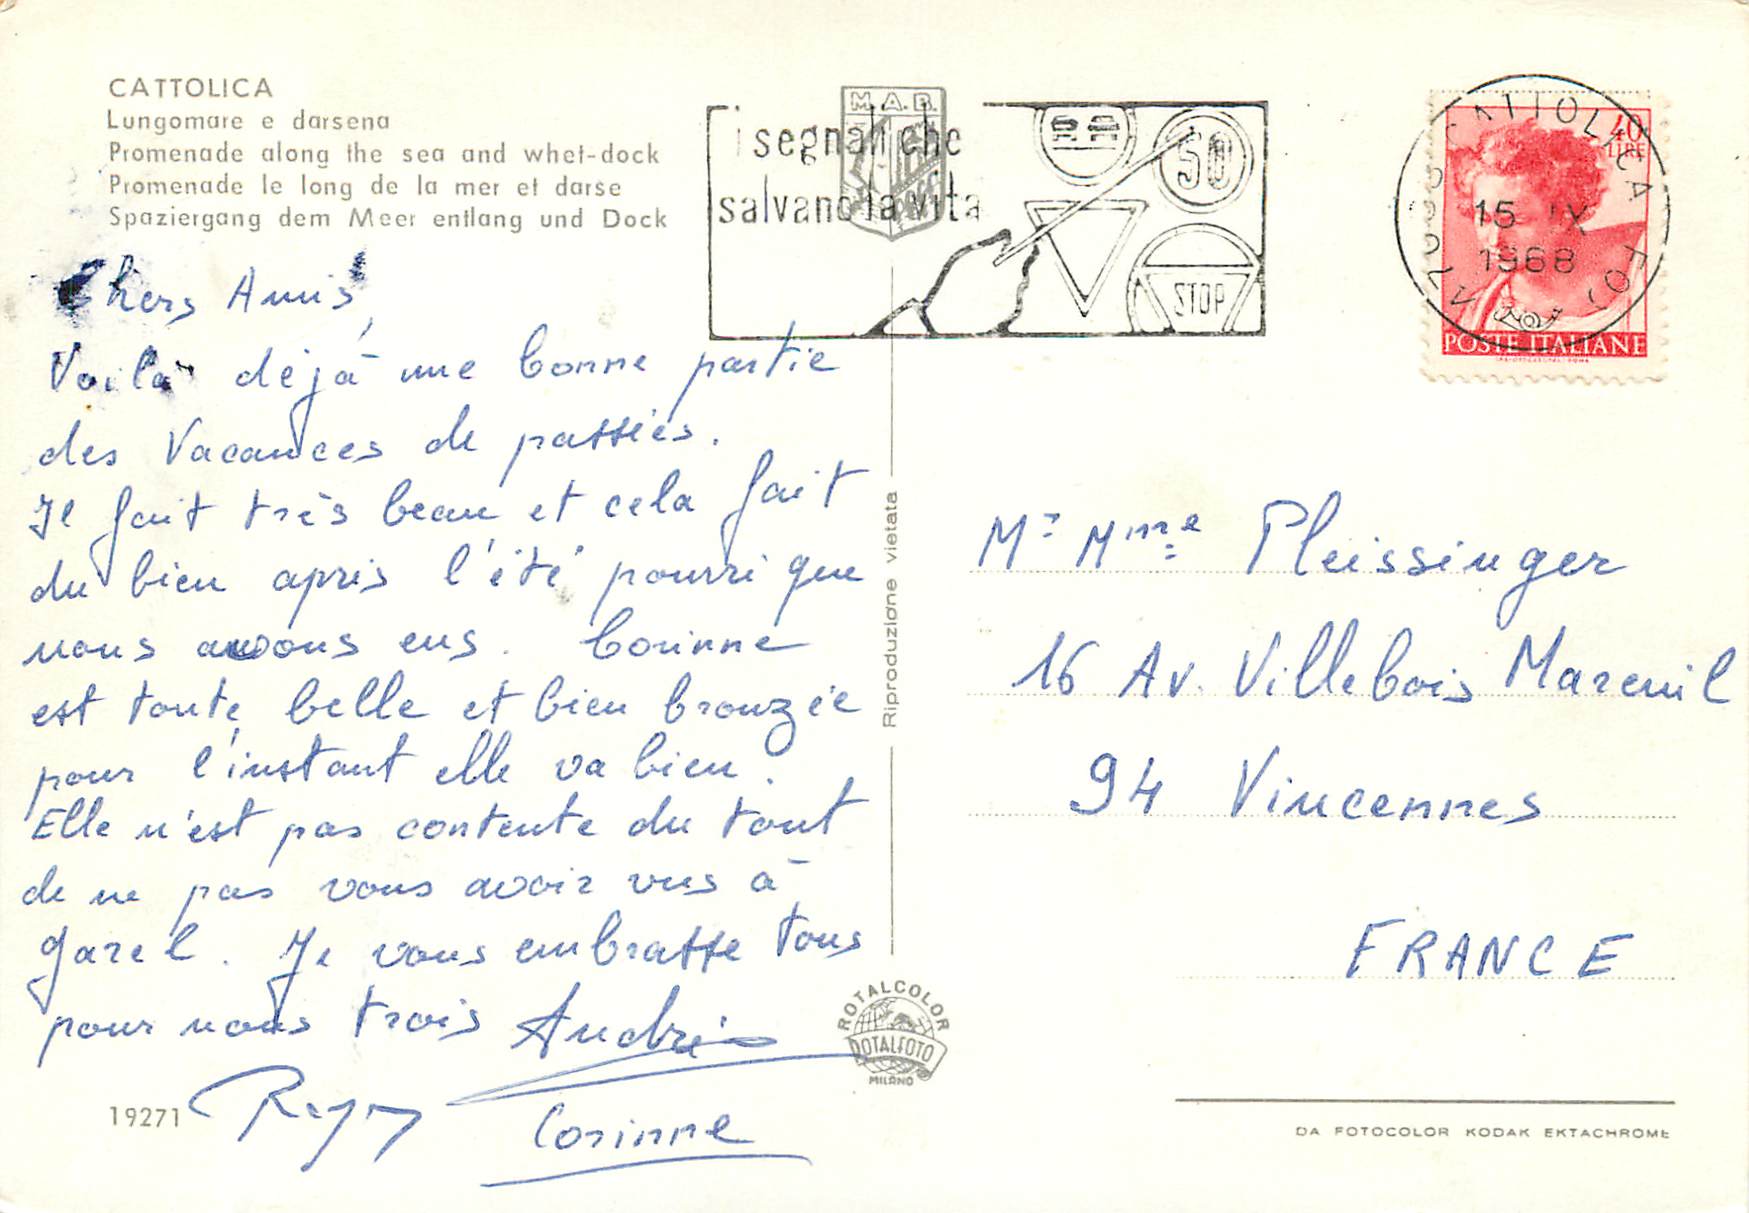 CATTOLICA
Lungomare e darsena
Promenade along the sea and whet-dock
Promenade le long de la mer et darse
Spaziergang dem Meer entlang und Dock
Chers Amis,
Voilà déjà une bonne partie
des Vacances de passées.
Il fait très beau et cela fait
du bien après l'été pourri que
nous avons eus. Corinne
est toute belle et bien bronzée
pour l'instant elle va bien.
Elle n'est pas contente du tout
de ne pas vous avoir vus à
Garel. Je vous embrasse tous
pour nous trois Andrée
Corinne
19271
M.A.B.
i segnali che
salvano la vita
50
STOP
CATTOLICA FO
15 IX
1968
40
LIRE
POSTE ITALIANE
Riproduzione vietata
ROTALCOLOR
ROTALFOTO
MILANO
Mr Mme Pleissinger
16 Av. Villebois Mareuil
94 Vincennes
FRANCE
DA FOTOCOLOR KODAK EKTACHROME